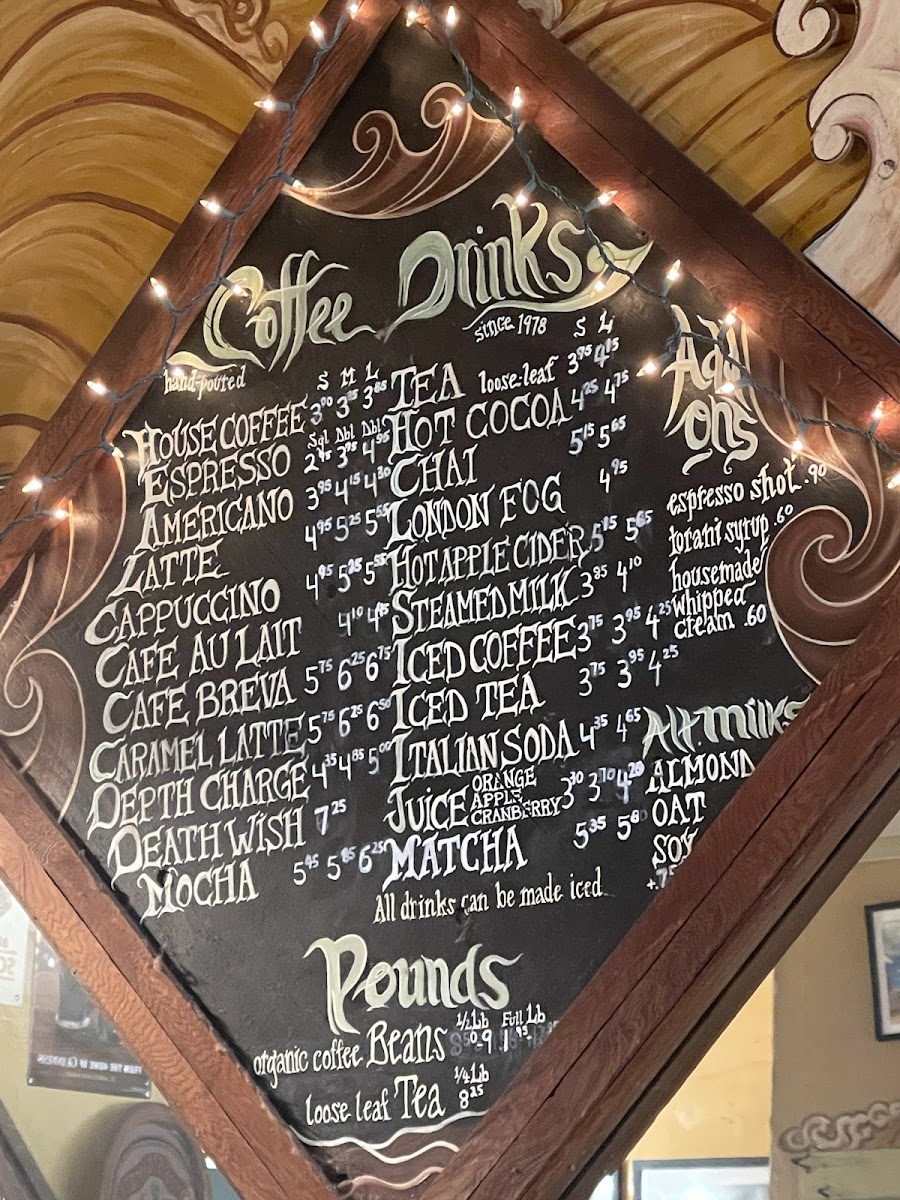 Coffee Drinks
since 1978
hand-poured
S M L
HOUSE COFFEE 3.00 3.35 3.85
Sgl Dbl Dbl
ESPRESSO 2.95 3.95 4.95
AMERICANO 3.95 4.15 4.30
LATTE 4.95 5.25 5.55
CAPPUCCINO 4.95 5.25 5.55
CAFE AU LAIT 4.10 4.95
CAFE BREVA 5.75 6.25 6.75
CARAMEL LATTE 5.75 6.25 6.50
DEPTH CHARGE 4.35 4.85 5.00
DEATH WISH 7.25
MOCHA 5.45 5.85 6.25
S L
TEA loose-leaf 3.95 4.15
HOT COCOA 4.25 4.75
CHAI 5.15 5.65
LONDON FOG 4.95
HOT APPLE CIDER 5.15 5.65
STEAMED MILK 3.85 4.10
ICED COFFEE 3.75 3.95 4.25
ICED TEA 3.75 3.95 4.25
ITALIAN SODA 4.35 4.65
JUICE ORANGE APPLE CRANBERRY 3.30 3.70 4.20
MATCHA 5.35 5.80
All drinks can be made iced
Add ons
espresso shot .90
torani syrup .60
housemade
whipped
cream .60
Alt. milks
ALMOND
OAT
SOY
Pounds
1/2 Lb Full Lb
organic coffee Beans
1/4 Lb
loose leaf Tea 8.25